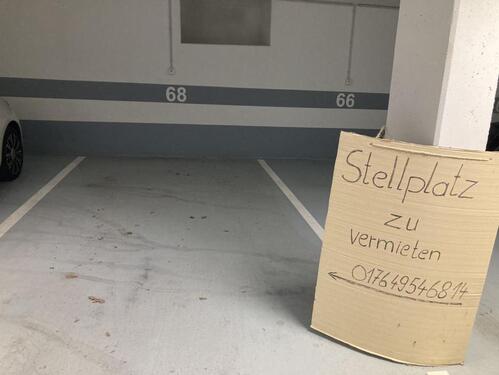 68
66
Stellplatz
zu
vermieten
017649546814